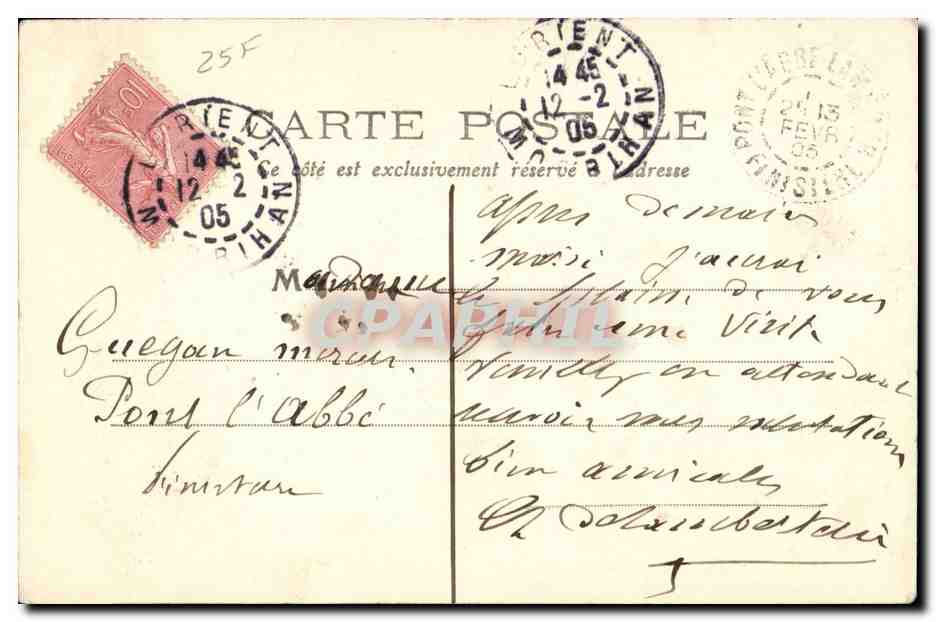 25F
10
LORIENT
14 45
12 - 2
05
MORBIHAN
LORIENT
14 45
12 - 2
05
MORBIHAN
PONT L'ABBE LAMBOUR
13
FEVR
05
FINISTERE
CARTE POSTALE
Ce côté est exclusivement réservé à l'adresse
Madame
Guegan mercier
Pont l'Abbé
Finistère
Après demain
mardi j'aurai
le plaisir de vous
faire une visite
Veuillez en attendant
recevoir mes salutations
bien amicales
CPAPHIL